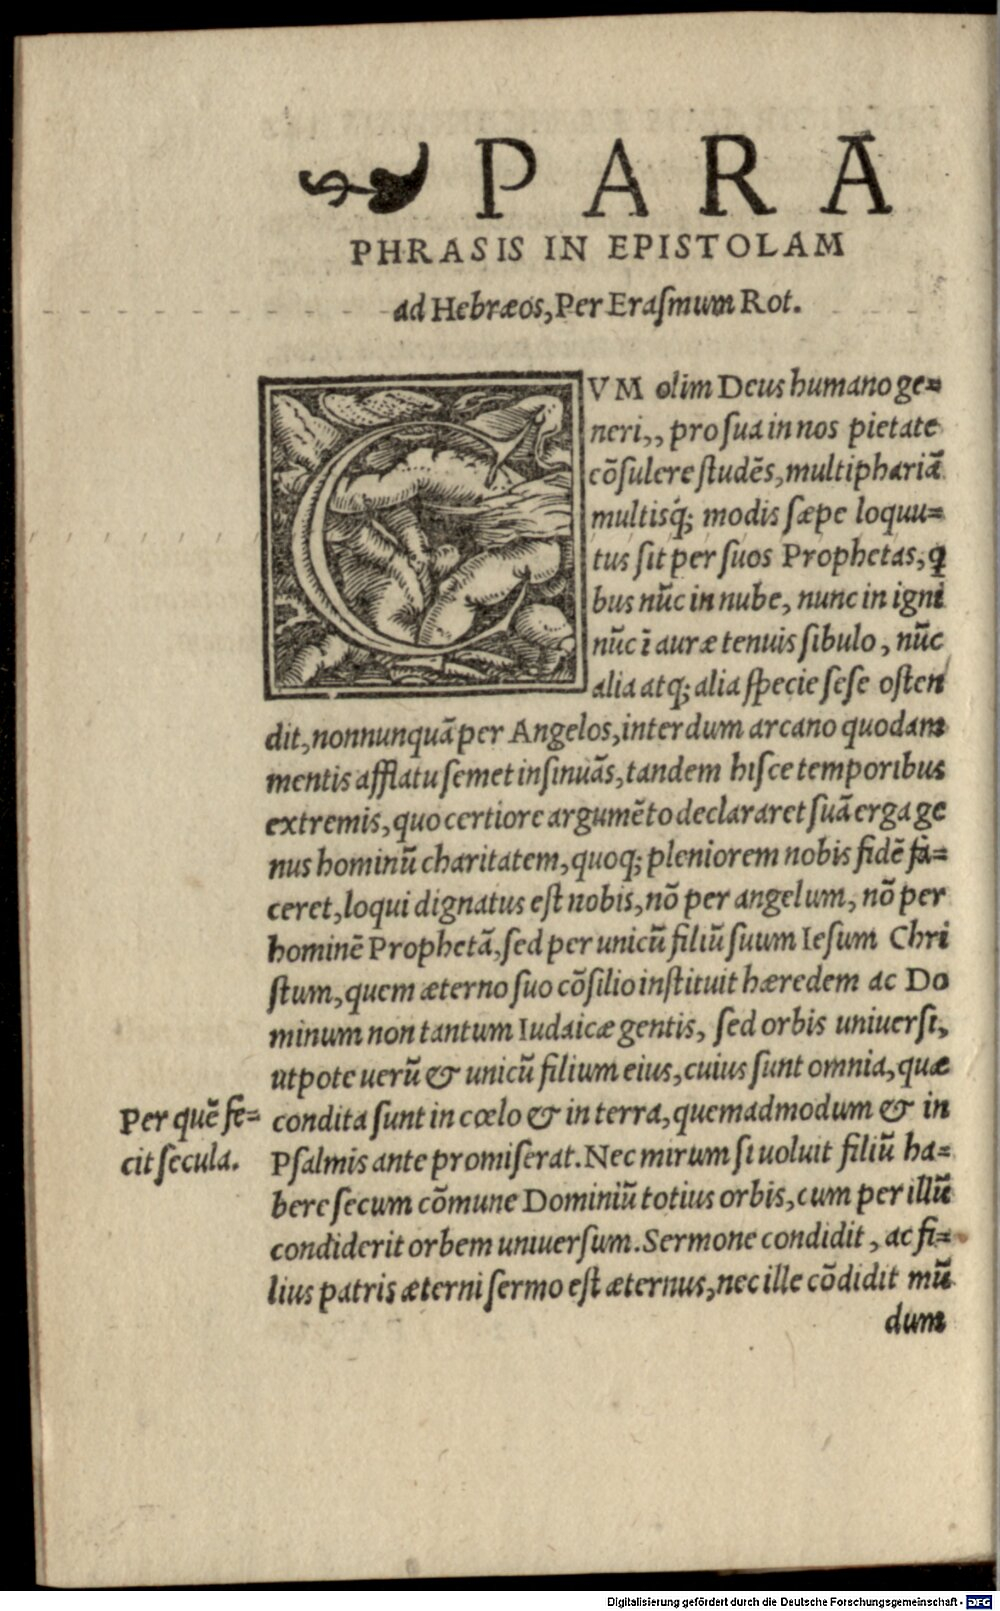 ❧ PARA
PHRASIS IN EPISTOLAM
ad Hebræos, Per Erasmum Rot.
CVM olim Deus humano ge=
neri,, pro sua in nos pietate
cõsulere studẽs, multiphariã
multisq́; modis sæpe loquu=
tus sit per suos Prophetas, q
bus nũc in nube, nunc in igni
nũc ĩ auræ tenuis sibulo, nũc
alia atq; alia specie sese osten
dit, nonnunquã per Angelos, interdum arcano quodam
mentis afflatu semet insinuãs, tandem hisce temporibus
extremis, quo certiore argumẽto declararet suã erga ge
nus hominũ charitatem, quoq; pleniorem nobis fidẽ fa=
ceret, loqui dignatus est nobis, nõ per angelum, nõ per
hominẽ Prophetã, sed per unicũ filiũ suum Iesum Chri
stum, quem æterno suo cõsilio instituit hæredem ac Do
minum non tantum Iudaicæ gentis, sed orbis uniuersi,
utpote uerũ & unicũ filium eius, cuius sunt omnia, quæ
Per quẽ fe=
cit secula.
condita sunt in cœlo & in terra, quemadmodum & in
Psalmis ante promiserat. Nec mirum si uoluit filiũ ha=
bere secum cõmune Dominiũ totius orbis, cum per illũ
condiderit orbem uniuersum. Sermone condidit, ac fi=
lius patris æterni sermo est æternus, nec ille cõdidit mũ
dum
Digitalisierung gefördert durch die Deutsche Forschungsgemeinschaft - DFG